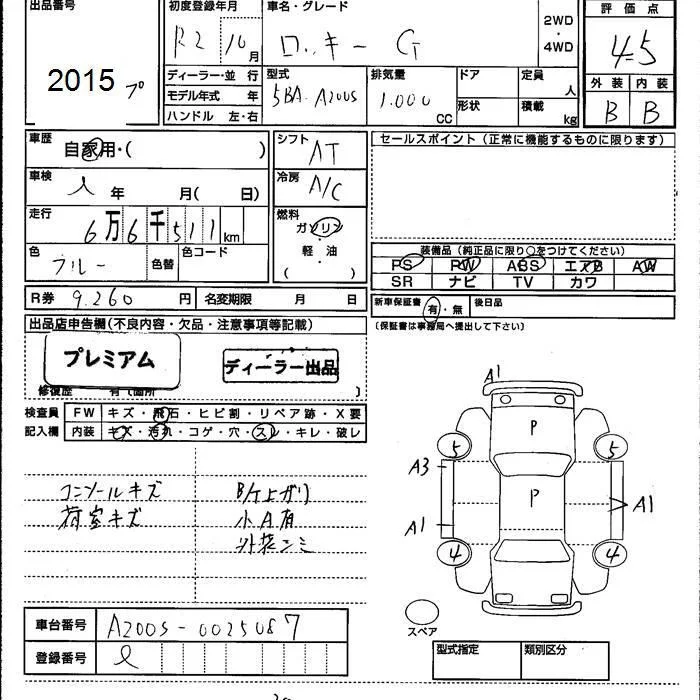 出品番号
2015 プ
初度登録年月
R2 10月
車名・グレード
ロッキー G
2WD
・
4WD
評価点
4.5
外装 内装
B B
ディーラー・並行
モデル年式 年
ハンドル 左・右
型式
5BA. A200S
排気量
1.000
CC
ドア
形状
定員
人
積載
kg
車歴
自家用・( )
車検
年 月( 日)
走行
6万6千511km
色
ブルー
色替
色コード
シフト
AT
冷房
A/C
燃料
ガソリン
・
軽・油
・
( )
セールスポイント(正常に機能するものに限ります)
装備品(純正品に限り○をつけてください)
PS PW ABS エアB AW
SR ナビ TV カワ
R券 9.260 円 名変期限 月 日
新車保証書 有・無 後日品
(保証書は事務局へ提出して下さい)
出品店申告欄(不良内容・欠品・注意事項等記載)
プレミアム
ディーラー出品
修復歴 有(箇所 )
検査員
記入欄
FW キズ・飛石・ヒビ割・リペア跡・X要
内装 キズ・汚れ・コゲ・穴・スレ・キレ・破レ
コンソールキズ
荷室キズ
B/ケ上ガリ
小A有
外装シミ
A1
P
5 5
A3
P
A1
A1
4 4
スペア
車台番号 A200S-0025087
登録番号
型式指定 類別区分